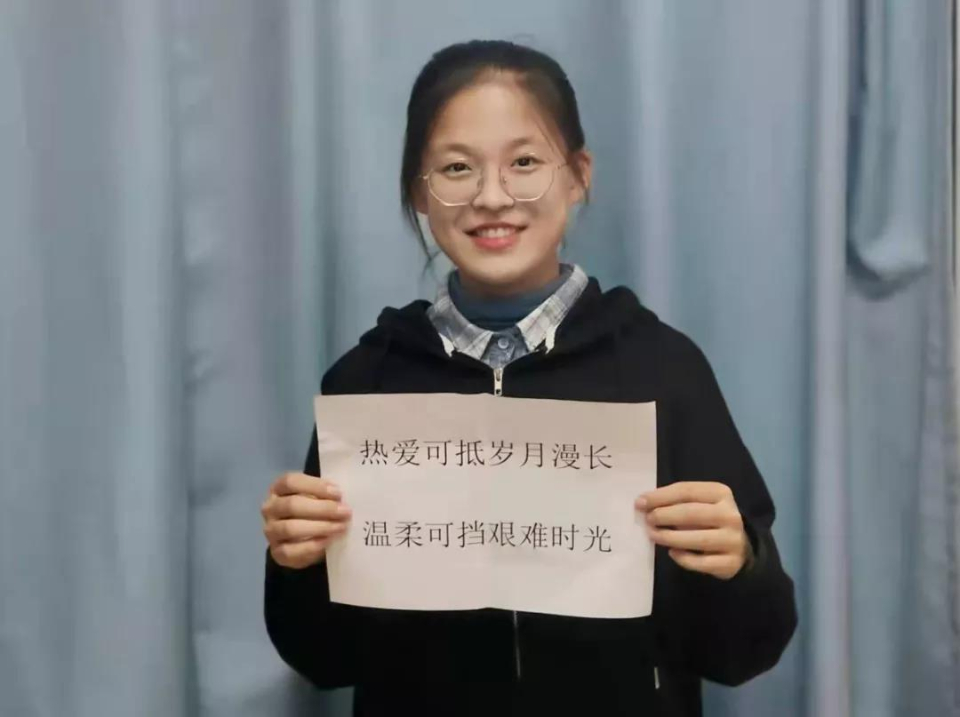 热爱可抵岁月漫长
温柔可挡艰难时光